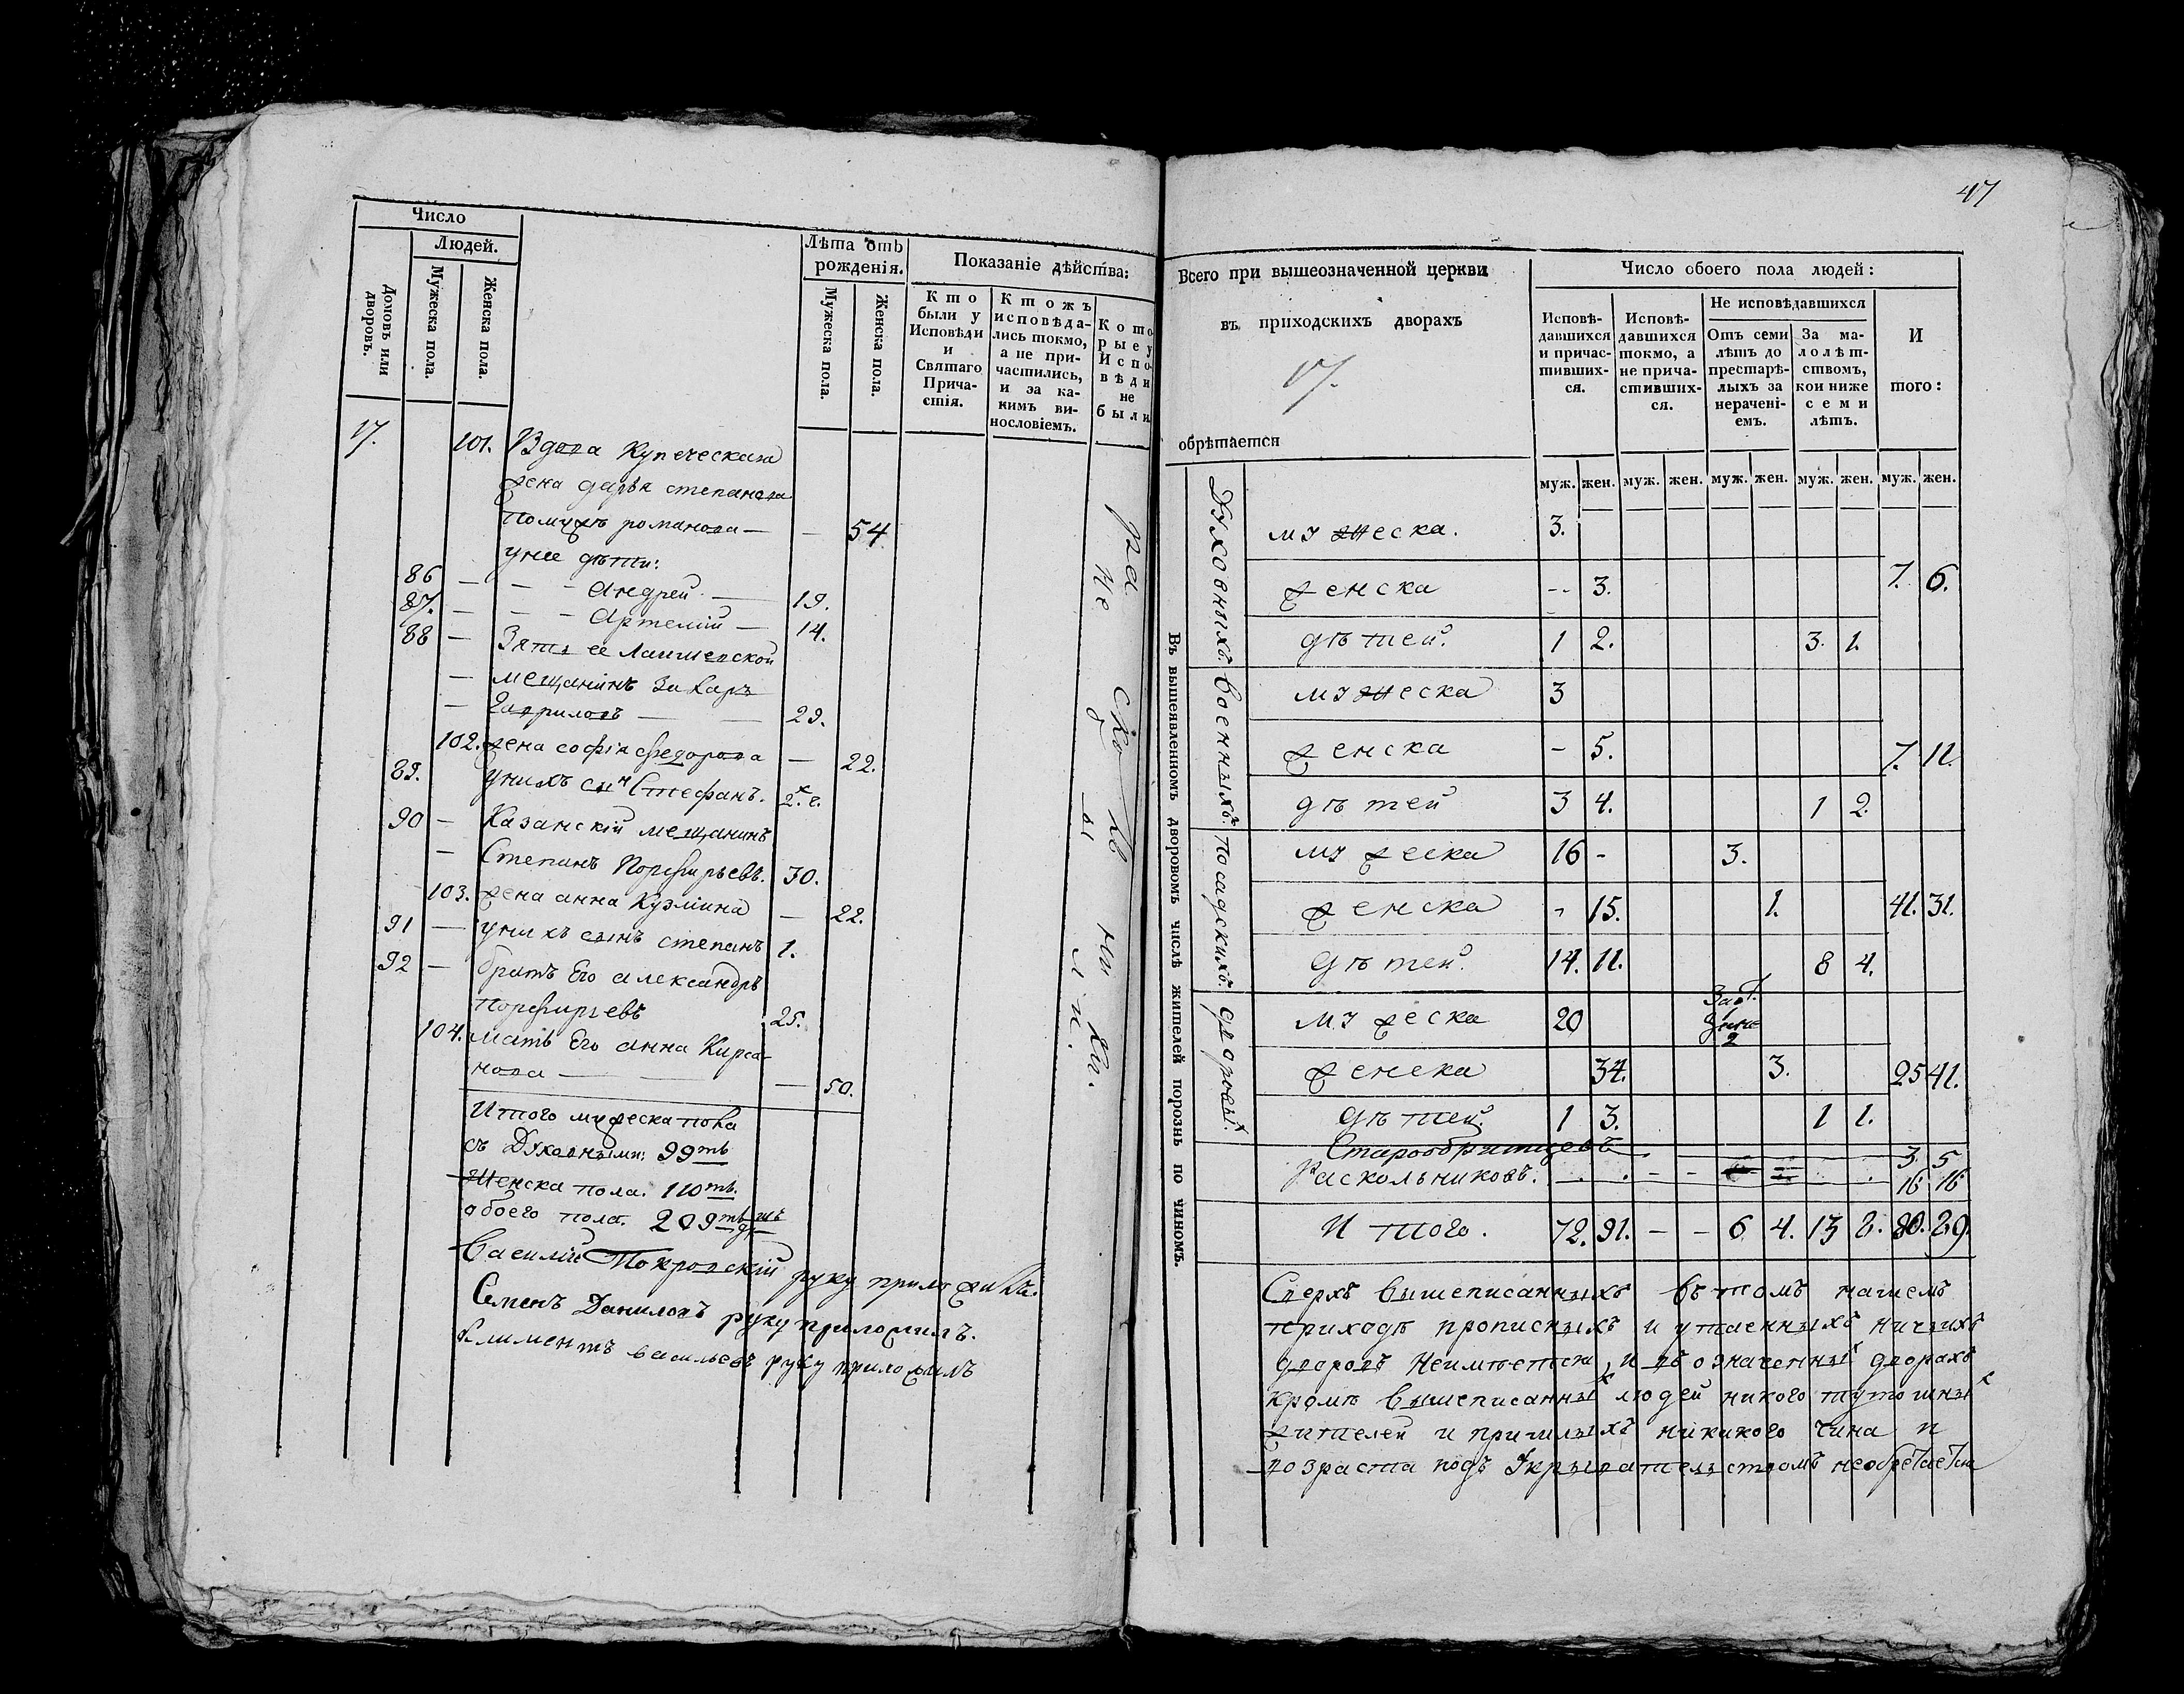 Число
Людей.
Домовъ или дворовъ.
Мужеска пола.
Женска пола.
Лѣта отъ рожденія.
Мужеска пола.
Женска пола.
Показаніе дѣйства:
Кто были у Исповѣди и Святаго Причастія.
Ктожъ исповѣдались токмо, а не причастились, и за какимъ винословіемъ.
Которые у Исповѣди не были
17. 101. Вдова Купеческая
жена дарья степанова
помужѣ романова — — 54
унее дѣти:
86 — — — Андрей — 19.
87. — — — Артемій — 14.
88 — Зять ее Лаишевской
— мещанинъ Захаръ
— Гавриловъ — — 29.
102. жена софія федорова — 22.
89. унихъ сын Стефанъ. 2.хъ
90 — Казанскій мещанинъ
— Степанъ Порфирьевъ. 30.
103. жена анна Кузмина — 22.
91 — унихъ сынъ степанъ 1.
92 — братъ Его александръ
Порфирьевъ 25.
104. мать Его анна Кирса-
нова — — 50.
Итого мужеска пола
съ Духовными: 99ть
Женска пола. 110ть.
обоего пола. 209ть
Василій Покровскій руку приложилъ.
Семенъ Даниловъ руку приложилъ.
Климентъ васильевъ руку приложилъ
рас коль ни ки.
не бы ли.
47
Всего при вышеозначенной церкви
въ приходскихъ дворахъ
17.
обрѣтается
Число обоего пола людей:
Исповѣдавшихся и причастившихся.
Исповѣдавшихся токмо, а не причастившихся.
Не исповѣдавшихся
Отъ семи лѣтъ до престарѣлыхъ за нераченіемъ.
За малолѣтствомъ, кои ниже семи лѣтъ.
И того:
муж. жен. муж. жен. муж. жен. муж. жен. муж. жен.
Въ вышеявленномъ дворовомъ числѣ жителей порознь по чиномъ.
Духовныхъ.
мужеска. 3.
женска -- 3. 7. 6.
дѣтей. 1 2. 3. 1.
Военныхъ.
мужеска 3
женска - 5. 7. 11.
дѣтей 3 4. 1 2.
Посадскихъ.
мужеска 16 - 3.
женска - 15. 1. 41. 31.
дѣтей. 14. 11. 8 4.
дворовых
мужеска 20 2
женска 34. 3. 25 41.
дѣтей. 1 3. 1 1.
Старообрятцевъ 3. 5
Раскольниковъ. 16 16
Итого. 72. 91. - - 6 4. 13 8.
Сверхъ вышеписанныхъ въ томъ нашемъ
приходѣ прописныхъ и утаенныхъ ничьихъ
дворовъ неимѣется, и въ означенных дворахъ
кромѣ вышеписанных людей никого тутошных
жителей и пришлыхъ никакого чина и
возраста подъ Укрывательствомъ необретается